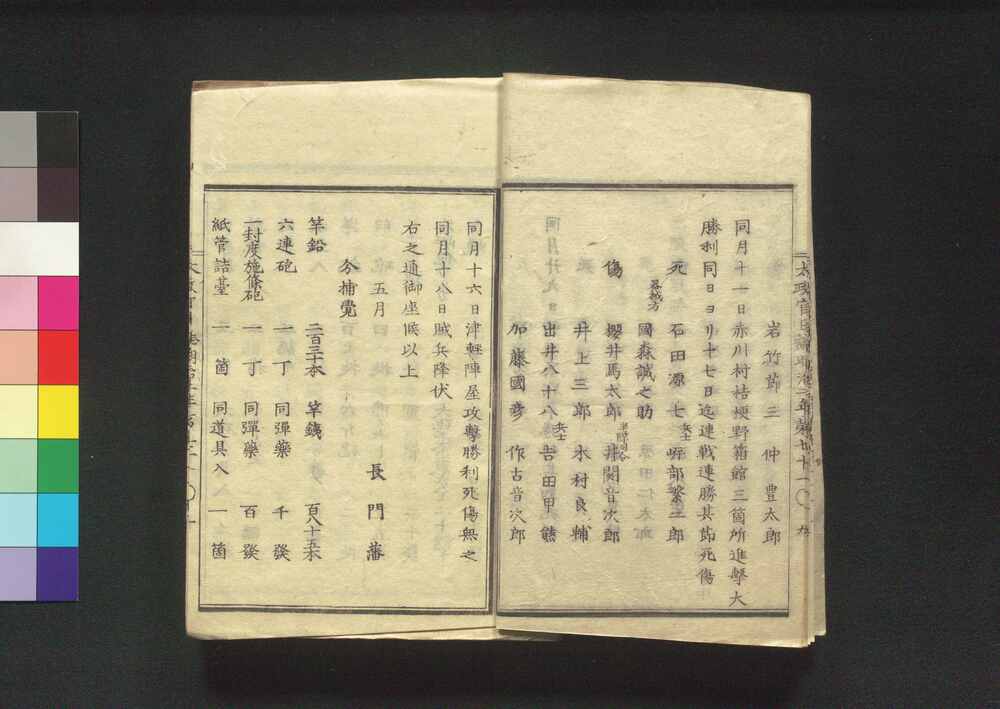 岩竹節三 仲豊太郎
同月十一日赤川村桔梗野箱館三箇所進擊大
勝利同日ヨリ十七日迄連戦連勝其節死傷
死 石田源七 兵士 部繁三郎
國森誠之助
傷 櫻井馬太郎 井関音次郎
井上三郎 木村良輔
出井八十八 兵士 吉田甲熊
加藤國彦 作古音次郎
太政官日誌明治二年第七十一 ○ 九
同月十六日津軽陣屋攻擊勝利死傷無之
同月十八日賊兵降伏
右之通御座候以上
五月 長門藩
分捕覺
竿鉛 二百三十本 竿銕 百八十五本
六連砲 一丁 同彈藥 千發
一封度施條砲 一丁 同彈藥 百發
紙管詰臺 一箇 同道具入 一箇